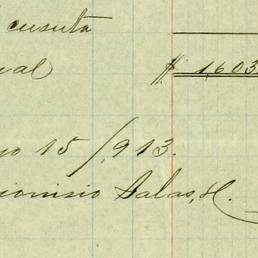 cuenta
ual $ 1,603
o 15/913.
ionisio Salas, H.